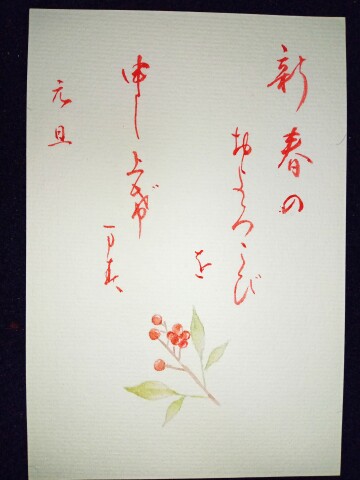 新春の
およろこび
を
申し上げ
ます
元旦